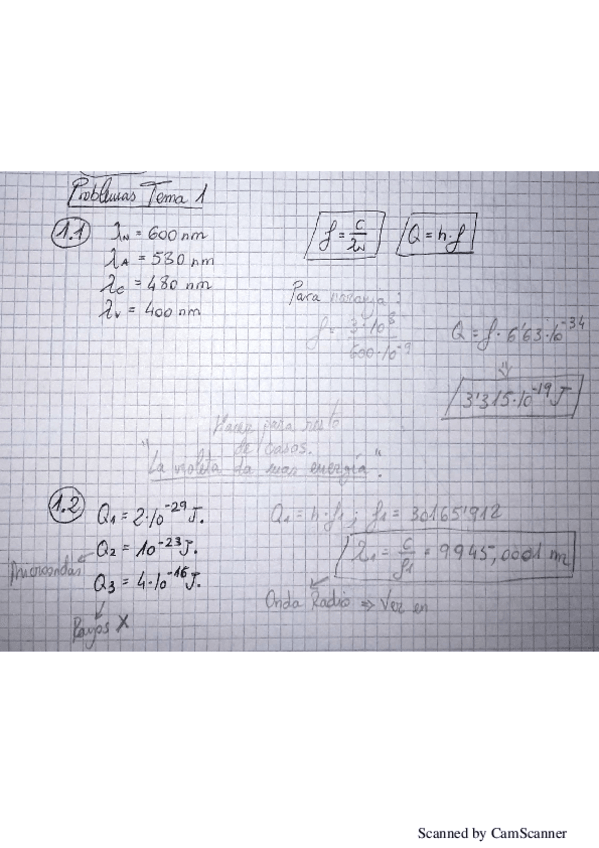 Problemas Tema 1
1.1 λN = 600 nm
λA = 580 nm
λC = 480 nm
λV = 400 nm
f = c/λN
Q = h·f
Para naranja:
f = 3·10^8 / 600·10^-9
Q = f · 6'63·10^-34
3'315·10^-19 J
Hacer para resto
de casos.
"La violeta da mas energía".
1.2 Q1 = 2·10^-29 J.
Q2 = 10^-23 J.
Microondas
Q3 = 4·10^-16 J.
Rayos X
Q1 = h·f1 ; f1 = 30165'912
λ1 = c/f1 = 9945,0001 m
Onda Radio ⇒ Ver en
Scanned by CamScanner